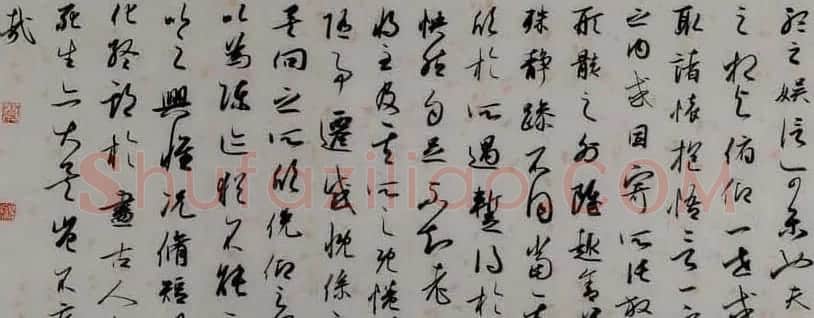 聽之娛信可樂也夫
之相與俯仰一世或
取諸懷抱悟言一
之內或因寄所託放
形骸之外雖趣舍
殊靜躁不同當其
欣於所遇暫得於
快然自足不知老
將至及其所之既惓
隨事遷感慨係
矣向之所欣俛仰之
以為陳迹猶不能
以之興懷況脩短
化終期於盡古人
死生亦大矣豈不
哉
Shufaziliao.COM